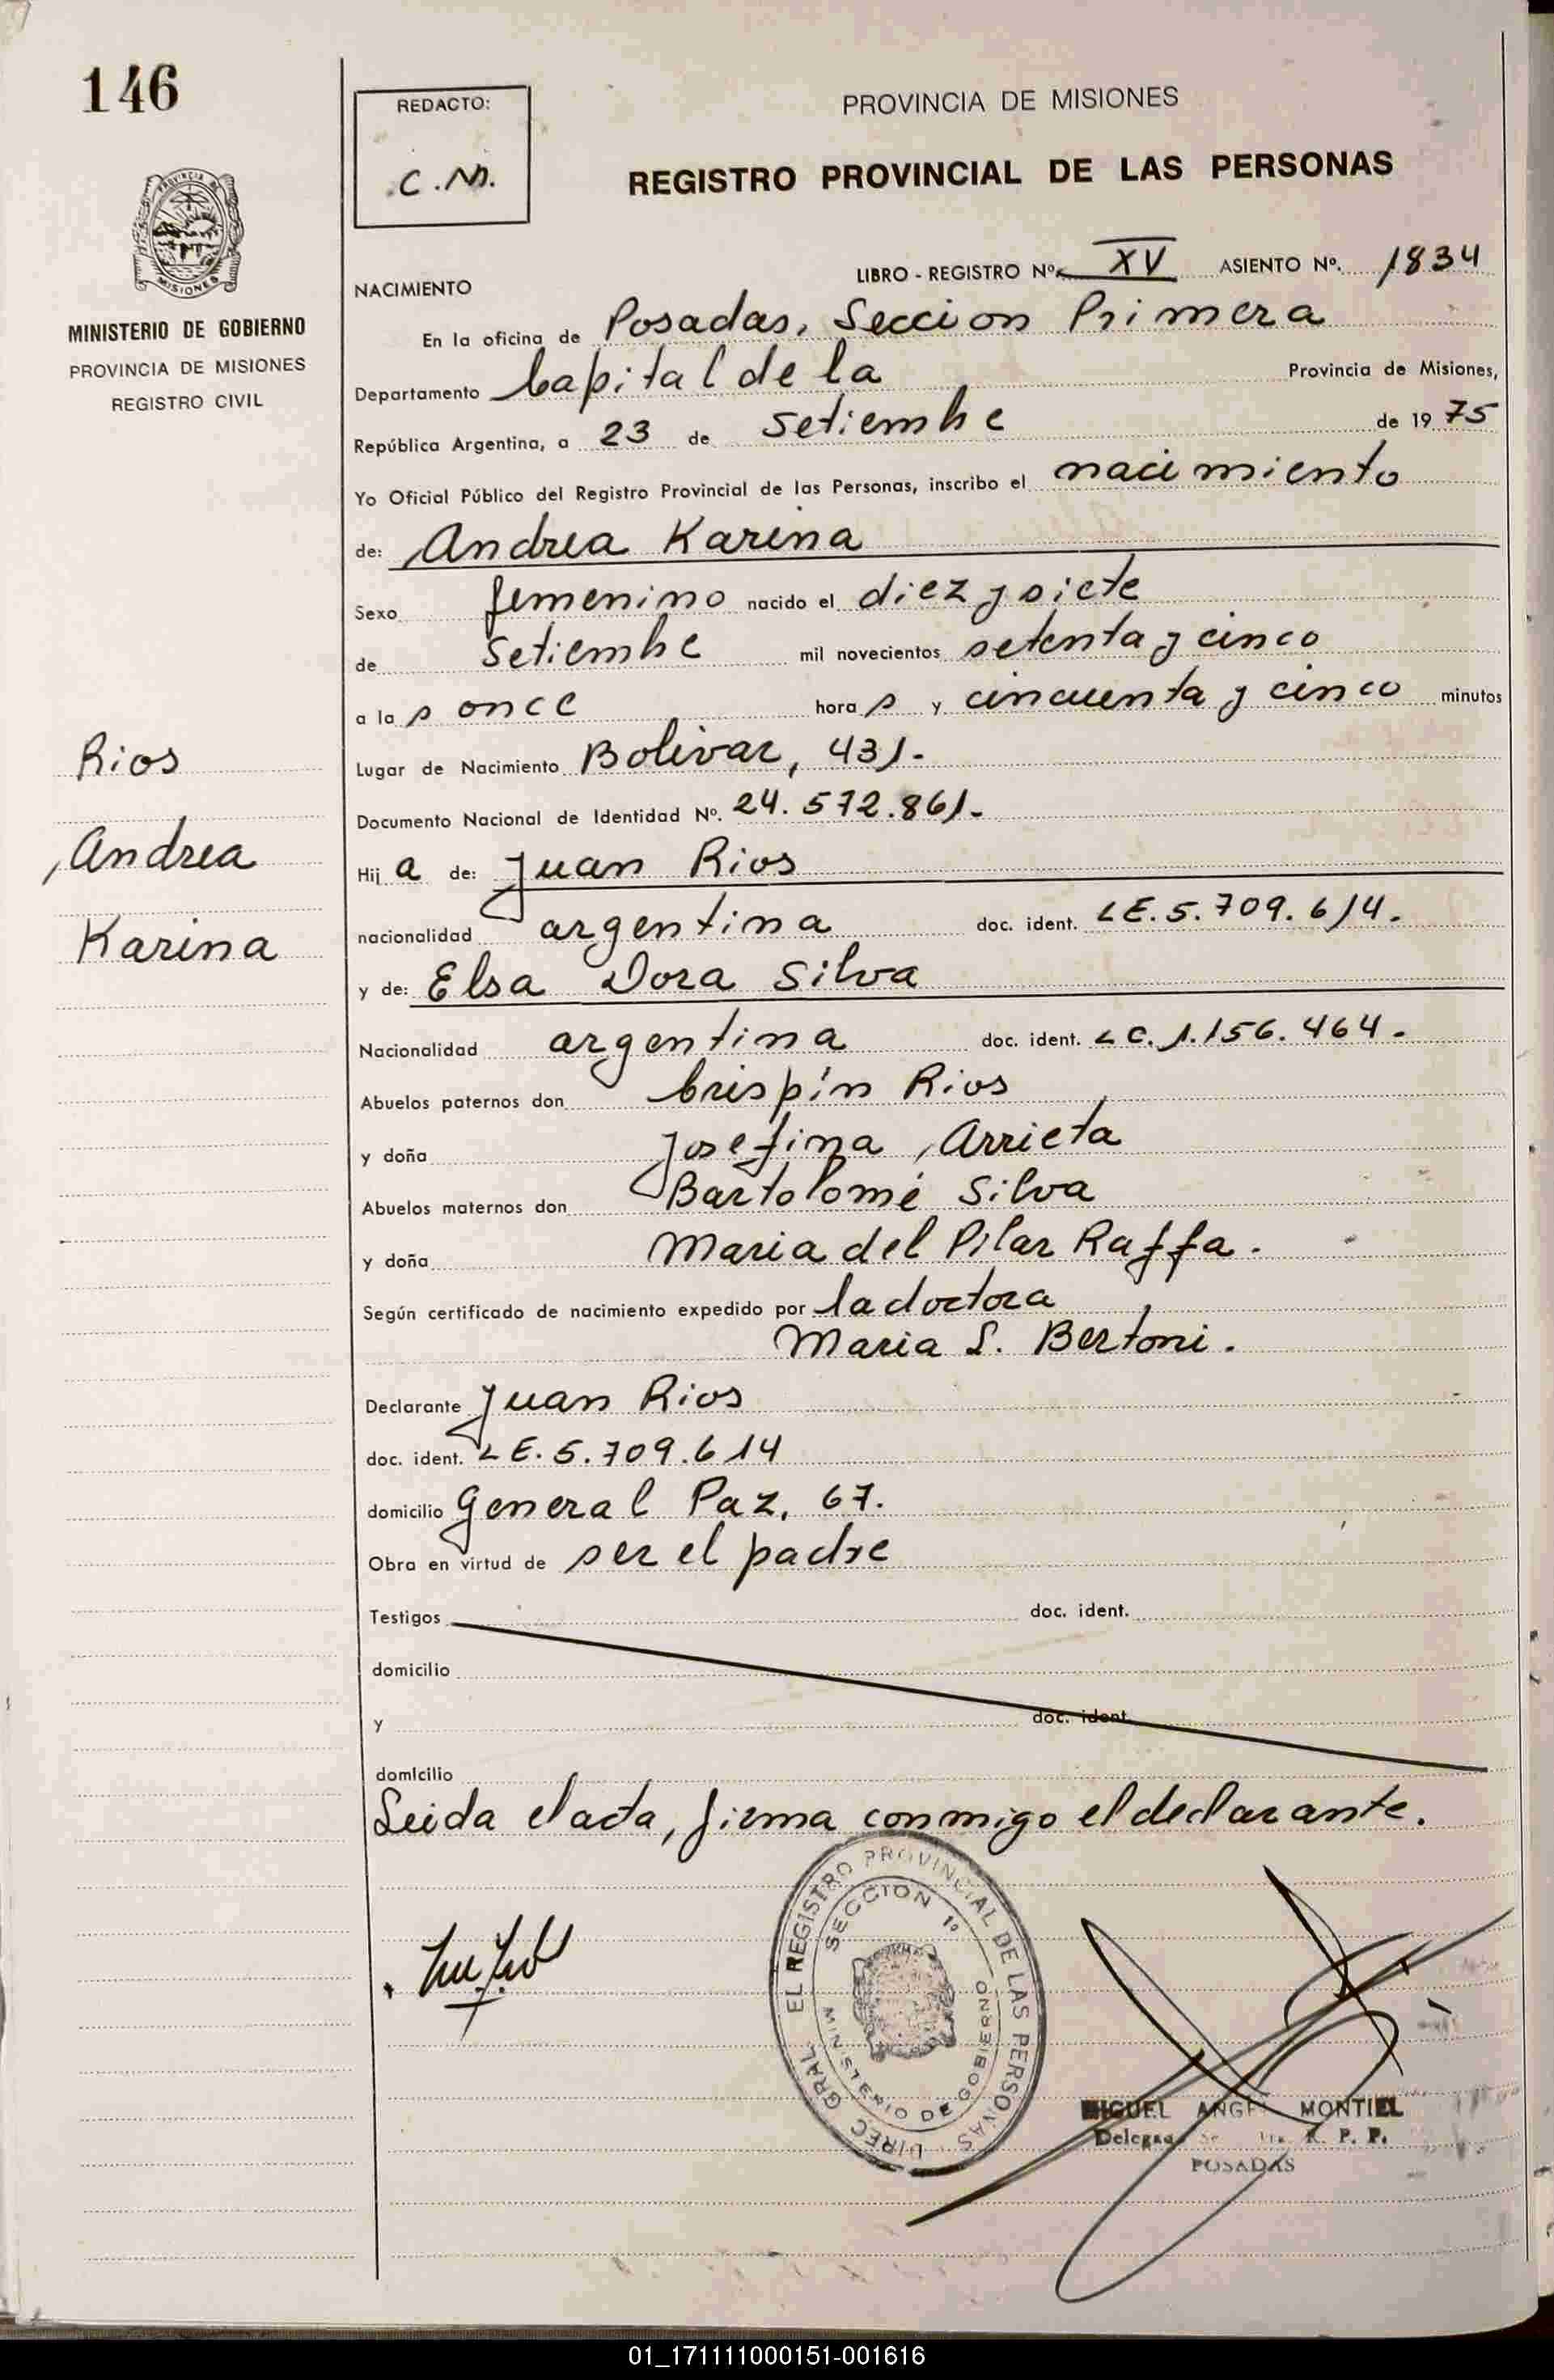 146
REDACTO:
C. M.
PROVINCIA DE MISIONES
REGISTRO PROVINCIAL DE LAS PERSONAS
PROVINCIA DE
MISIONES
MINISTERIO DE GOBIERNO
PROVINCIA DE MISIONES
REGISTRO CIVIL
LIBRO - REGISTRO Nº. XV ASIENTO Nº. 1834
NACIMIENTO
En la oficina de Posadas, Seccion Primera
Departamento Capital de la Provincia de Misiones,
República Argentina, a 23 de Setiembre de 1975
Yo Oficial Público del Registro Provincial de las Personas, inscribo el nacimiento
de: Andrea Karina
Sexo femenino nacido el diez y siete
de Setiembre mil novecientos setenta y cinco
a las once horas y cincuenta y cinco minutos
Lugar de Nacimiento Bolivar, 431.-
Documento Nacional de Identidad Nº. 24.572.861.-
Hija de: Juan Rios
nacionalidad argentina doc. ident. LE. 5.709.614.
y de: Elsa Dora Silva
Nacionalidad argentina doc. ident. LC. 1.156.464.
Abuelos paternos don Crispín Rios
y doña Josefina Arrieta
Abuelos maternos don Bartolomé Silva
y doña Maria del Pilar Raffa.
Según certificado de nacimiento expedido por la doctora
Maria S. Bertoni.
Declarante Juan Rios
doc. ident. LE. 5.709.614
domicilio General Paz, 67.
Obra en virtud de ser el padre
Testigos doc. ident.
domicilio
y doc. ident.
domicilio
Leida el acta, firma conmigo el declarante.
Rios
Andrea
Karina
DIREC. GRAL. EL REGISTRO PROVINCIAL DE LAS PERSONAS
SECCION 1º
MINISTERIO DE GOBIERNO
MIGUEL ANGEL MONTIEL
R. P. P.
POSADAS
01_171111000151-001616